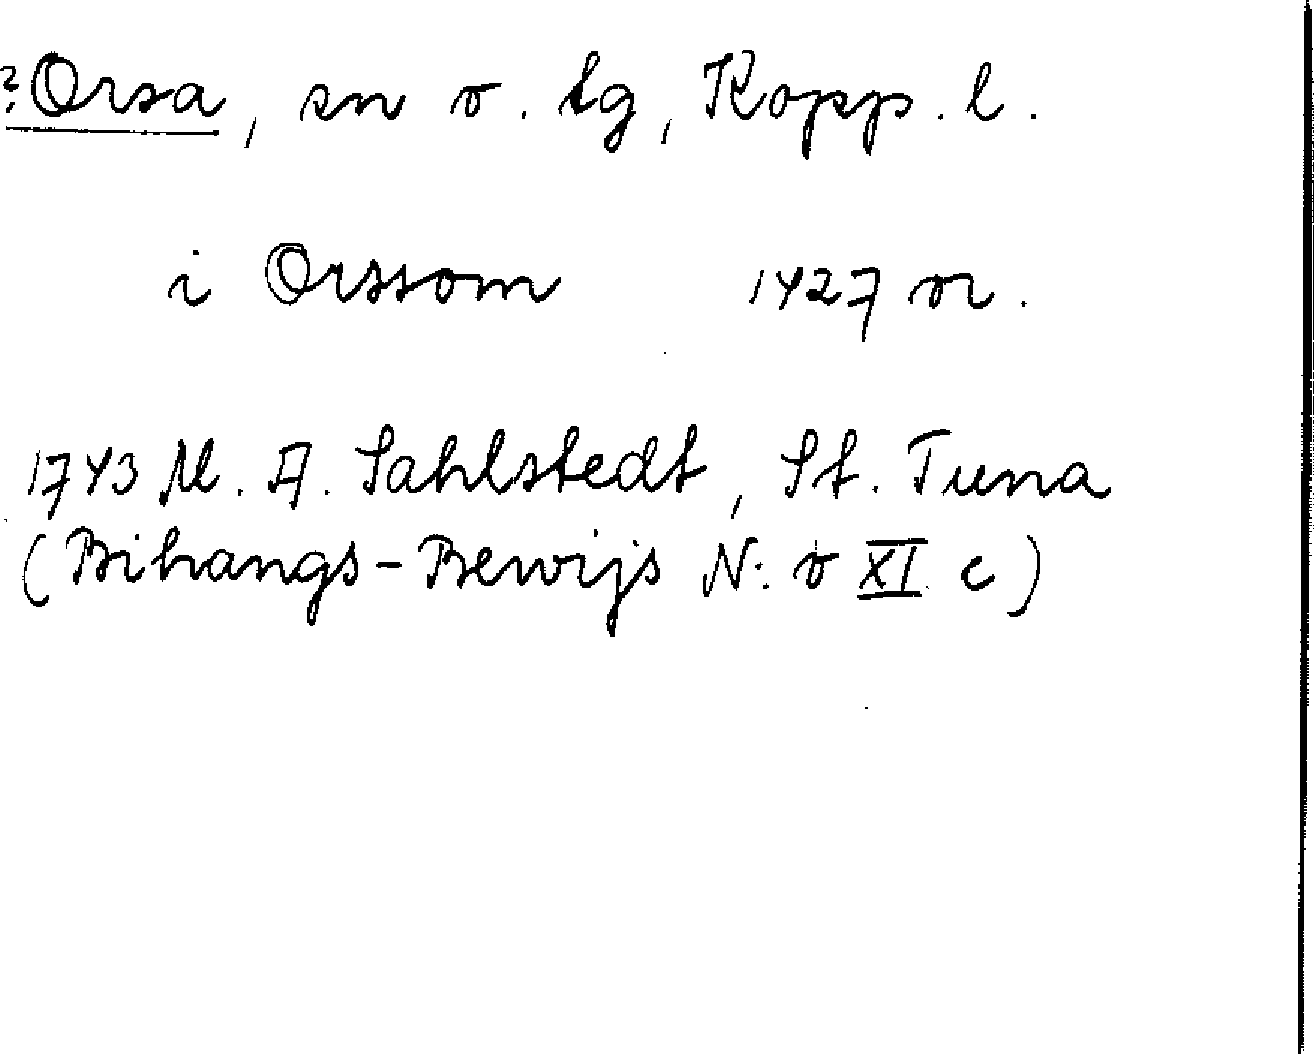 ?Orsa, sn o. tg, Kopp. l.
i Orssom 1427 or.
1743 M. A. Sahlstedt, St. Tuna
(Bihangs-Bewijs N:o XI c)